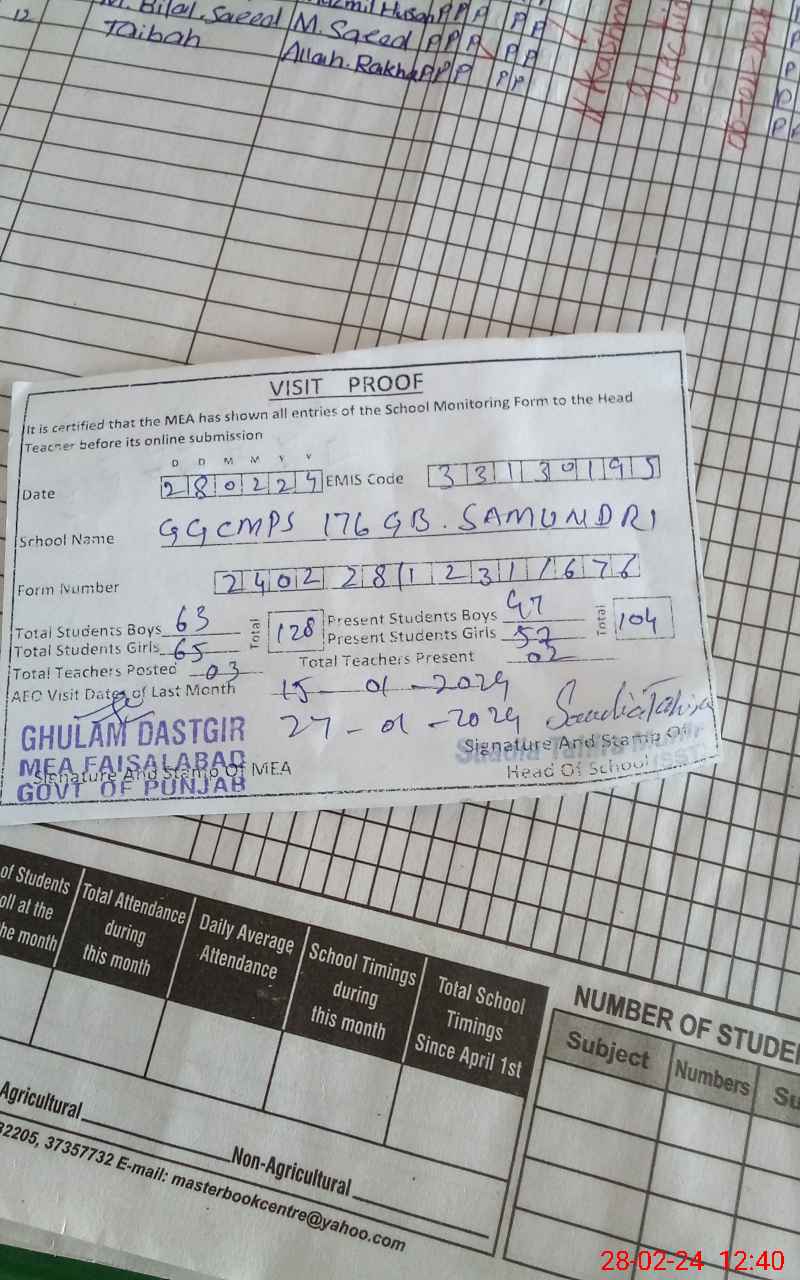 12
Bilal Saeed M. Saeed P P P P P
Taibah Allah. Rakha P P P P P
VISIT PROOF
It is certified that the MEA has shown all entries of the School Monitoring Form to the Head
Teacher before its online submission
D D M M Y Y
Date 280224 EMIS Code 33130195
School Name GGCMPS 176 GB. SAMUNDRI
Form Number
Total Students Boys 63 Total 128 Present Students Boys 47 Total 104
Total Students Girls 65 Present Students Girls 57
Total Teachers Posted 03 Total Teachers Present 02
AEO Visit Dates of Last Month 15-01-2024
27-01-2024 Saadia Tahira
GHULAM DASTGIR
MEA FAISALABAD
GOVT OF PUNJAB
Signature And Stamp Of MEA
Signature And Stamp Of
Head Of School
of Students
oll at the
he month
Total Attendance
during
this month
Daily Average
Attendance
School Timings
during
this month
Total School
Timings
Since April 1st
NUMBER OF STUDE
Subject Numbers Su
Agricultural
Non-Agricultural
32205, 37357732 E-mail: masterbookcentre@yahoo.com
28-02-24 12:40